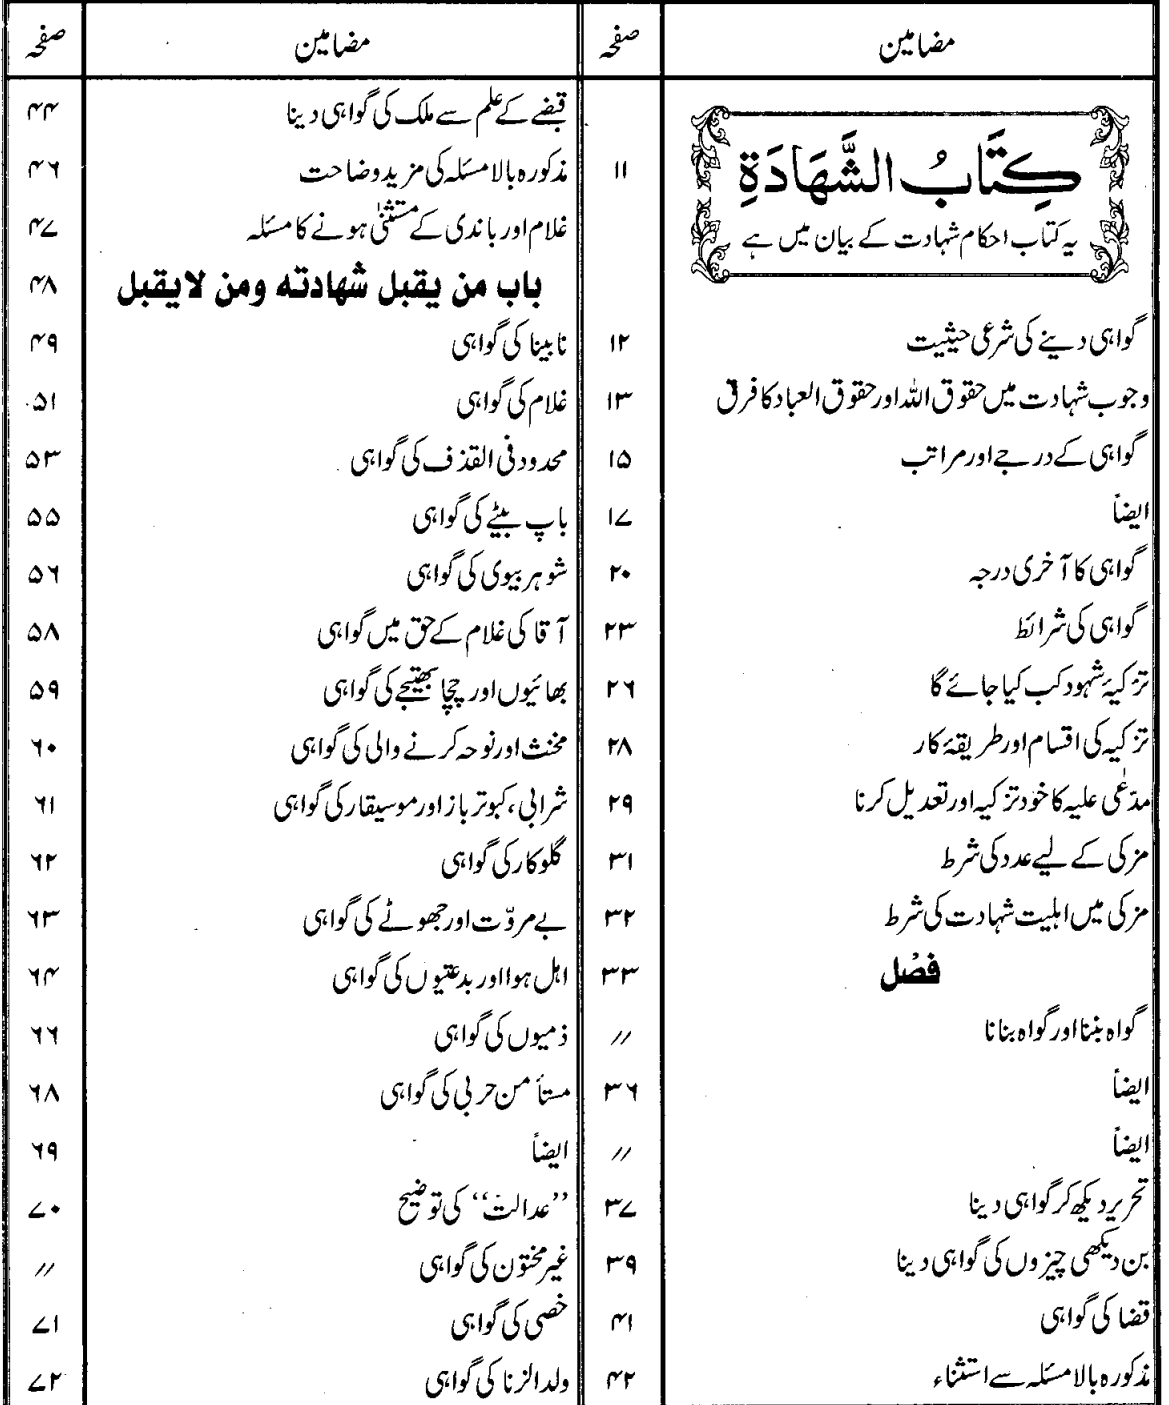 مضامین صفحہ
کِتَابُ الشَّهَادَةِ ۱۱
یہ کتاب احکام شہادت کے بیان میں ہے
گواہی دینے کی شرعی حیثیت ۱۲
وجوب شہادت میں حقوق اللہ اور حقوق العباد کا فرق ۱۳
گواہی کے درجے اور مراتب ۱۵
ایضاً ۱۷
گواہی کا آخری درجہ ۲۰
گواہی کی شرائط ۲۳
تزکیۂ شہود کب کیا جائے گا ۲۶
تزکیہ کی اقسام اور طریقۂ کار ۲۸
مدعٰی علیہ کا خود تزکیہ اور تعدیل کرنا ۲۹
مزکی کے لیے عدد کی شرط ۳۱
مزکی میں اہلیت شہادت کی شرط ۳۲
فصْل ۳۳
گواہ بننا اور گواہ بنانا //
ایضاً ۳۶
ایضاً //
تحریر دیکھ کر گواہی دینا ۳۷
بن دیکھی چیزوں کی گواہی دینا ۳۹
قضا کی گواہی ۴۱
مذکورہ بالا مسئلہ سے استثناء ۴۲
مضامین صفحہ
قبضے کے علم سے ملک کی گواہی دینا ۴۴
مذکورہ بالا مسئلہ کی مزید وضاحت ۴۶
غلام اور باندی کے مستثنٰی ہونے کا مسئلہ ۴۷
باب من یقبل شهادته ومن لا یقبل ۴۸
نابینا کی گواہی ۴۹
غلام کی گواہی ۵۱
محدود فی القذف کی گواہی ۵۳
باپ بیٹے کی گواہی ۵۵
شوہر بیوی کی گواہی ۵۶
آقا کی غلام کے حق میں گواہی ۵۸
بھائیوں اور چچا بھتیجے کی گواہی ۵۹
مخنث اور نوحہ کرنے والی کی گواہی ۶۰
شرابی، کبوتر باز اور موسیقار کی گواہی ۶۱
گلوکار کی گواہی ۶۲
بے مروّت اور جھوٹے کی گواہی ۶۳
اہل ہوا اور بدعتیوں کی گواہی ۶۴
ذمیوں کی گواہی ۶۶
مستأمن حربی کی گواہی ۶۸
ایضاً ۶۹
’’عدالت‘‘ کی توضیح ۷۰
غیر مختون کی گواہی //
خصی کی گواہی ۷۱
ولد الزنا کی گواہی ۷۲